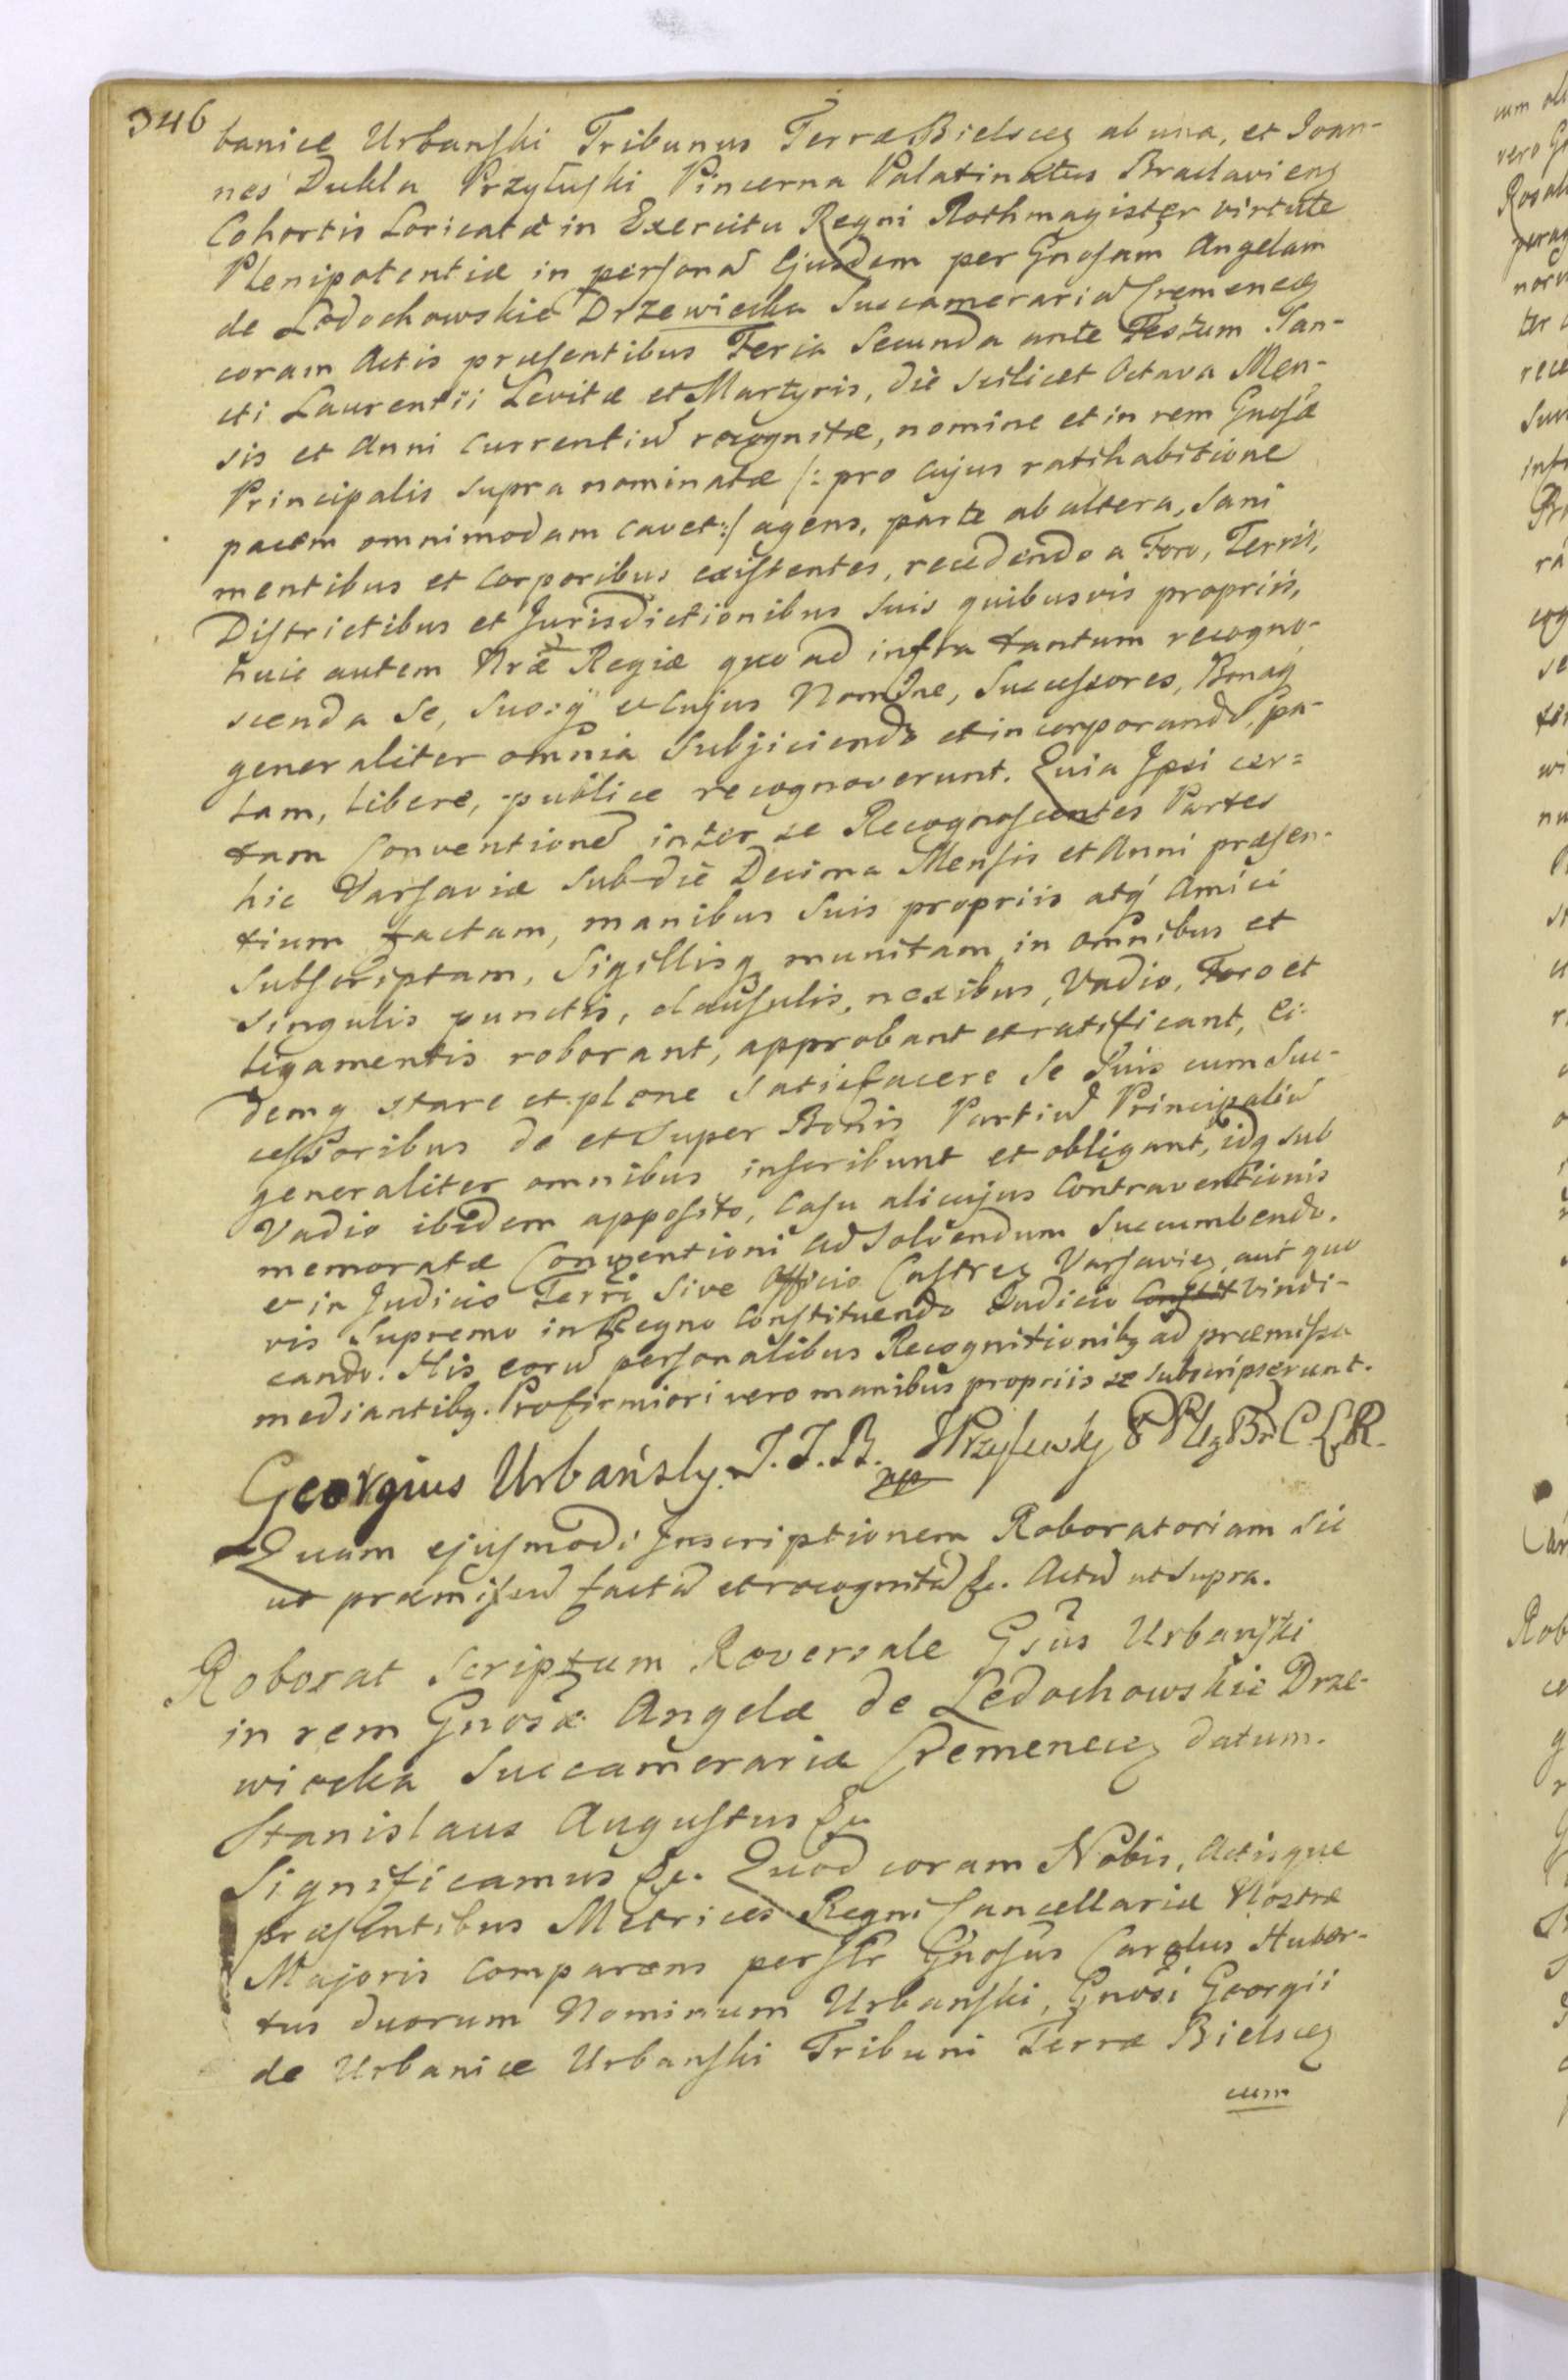 346
banice Urbanski Tribunus Terræ Bielscez ab una, et Joan-
nes Dukla Przyłuski Pincerna Palatinatus Braclaviens
Cohortis Loricatæ in Exercitu Regni Rothmagister virtute
Plenipotentiæ in personã Ejusdem per Gnosam Angelam
de Ledochowskie Drzewiecka Succamerariã Cremenecz
coram Actis præsentibus Feria Secunda ante Festum San-
cti Laurentii Levitæ et Martyris, die scilicet Octava Men-
sis et Anni currentiũ recognitæ, nomine et in rem Gnosæ
Principalis supra nominatæ /: pro cujus ratihabitione
pacem omnimodam cavet :/ agens, parte ab altera, Sani
mentibus et corporibus existentes, recedendo a Foro, Terris,
Districtibus et Jurisdictionibus suis quibusvis propriis,
huic autem Nræ Regiæ quo ad infra tantum recogno-
scenda se, suosq et cujus Nomine, Successores, Bonaq
generaliter omnia subjiciendo et incorporando, pa-
lam, libere, publice recognoverunt. Quia Ipsi cer=
tam Conventionẽ inter se Recognoscentes Partes
hic Varsaviæ sub die Decima Mensis et Anni præsen-
tium factam, manibus suis propriis atq Amici
subscriptam, Sigillisq munitam, in omnibus et
singulis punctis, clausulis, nexibus, Vadio, Foro et
ligamentis roborant, approbant et ratificant, Ei-
demq stare et plene satisfacere se suis cum Suc-
cessoribus de et super Bonis Partiũ Principaliũ
generaliter omnibus inscribunt et obligant, idq sub
Vadio ibidem apposito, casu alicujus Contraventionis
memoratæ Conventioni ad solvendum succumbendo.
et in Judicio Terri sive Officio Castrez Varsaviez, aut quo
vis Supremo in Regno Constituendo Judicio vindi-
cando. His eorũ personalibus Recognitionibq ad præmissa
mediantibq. Pro firmiori vero manibus propriis se subscripserunt.
Georgius Urbański. T. T. B. JPrzyłuski PPłzBr C L R.
mp
Quam ejusmodi Inscriptionem Roboratoriam sic
ut præmissũ factã et recognitã &c. Actũ ut supra.
Roborat Scriptum Reversale Gsus Urbanski
in rem Gnosæ Angelæ de Ledochowskie Drze-
wiecka Succamerariæ Cremenecz datum.
Stanislaus Augustus &c.
Significamus &c. Quod coram Nobis, Actisque
præsentibus Metrices Regni Cancellariæ Nostræ
Majoris comparens persłr Gnosus Carolus Huber-
tus duorum Nominum Urbanski, Gnosi Georgii
de Urbanice Urbanski Tribuni Terræ Bielscez
cum